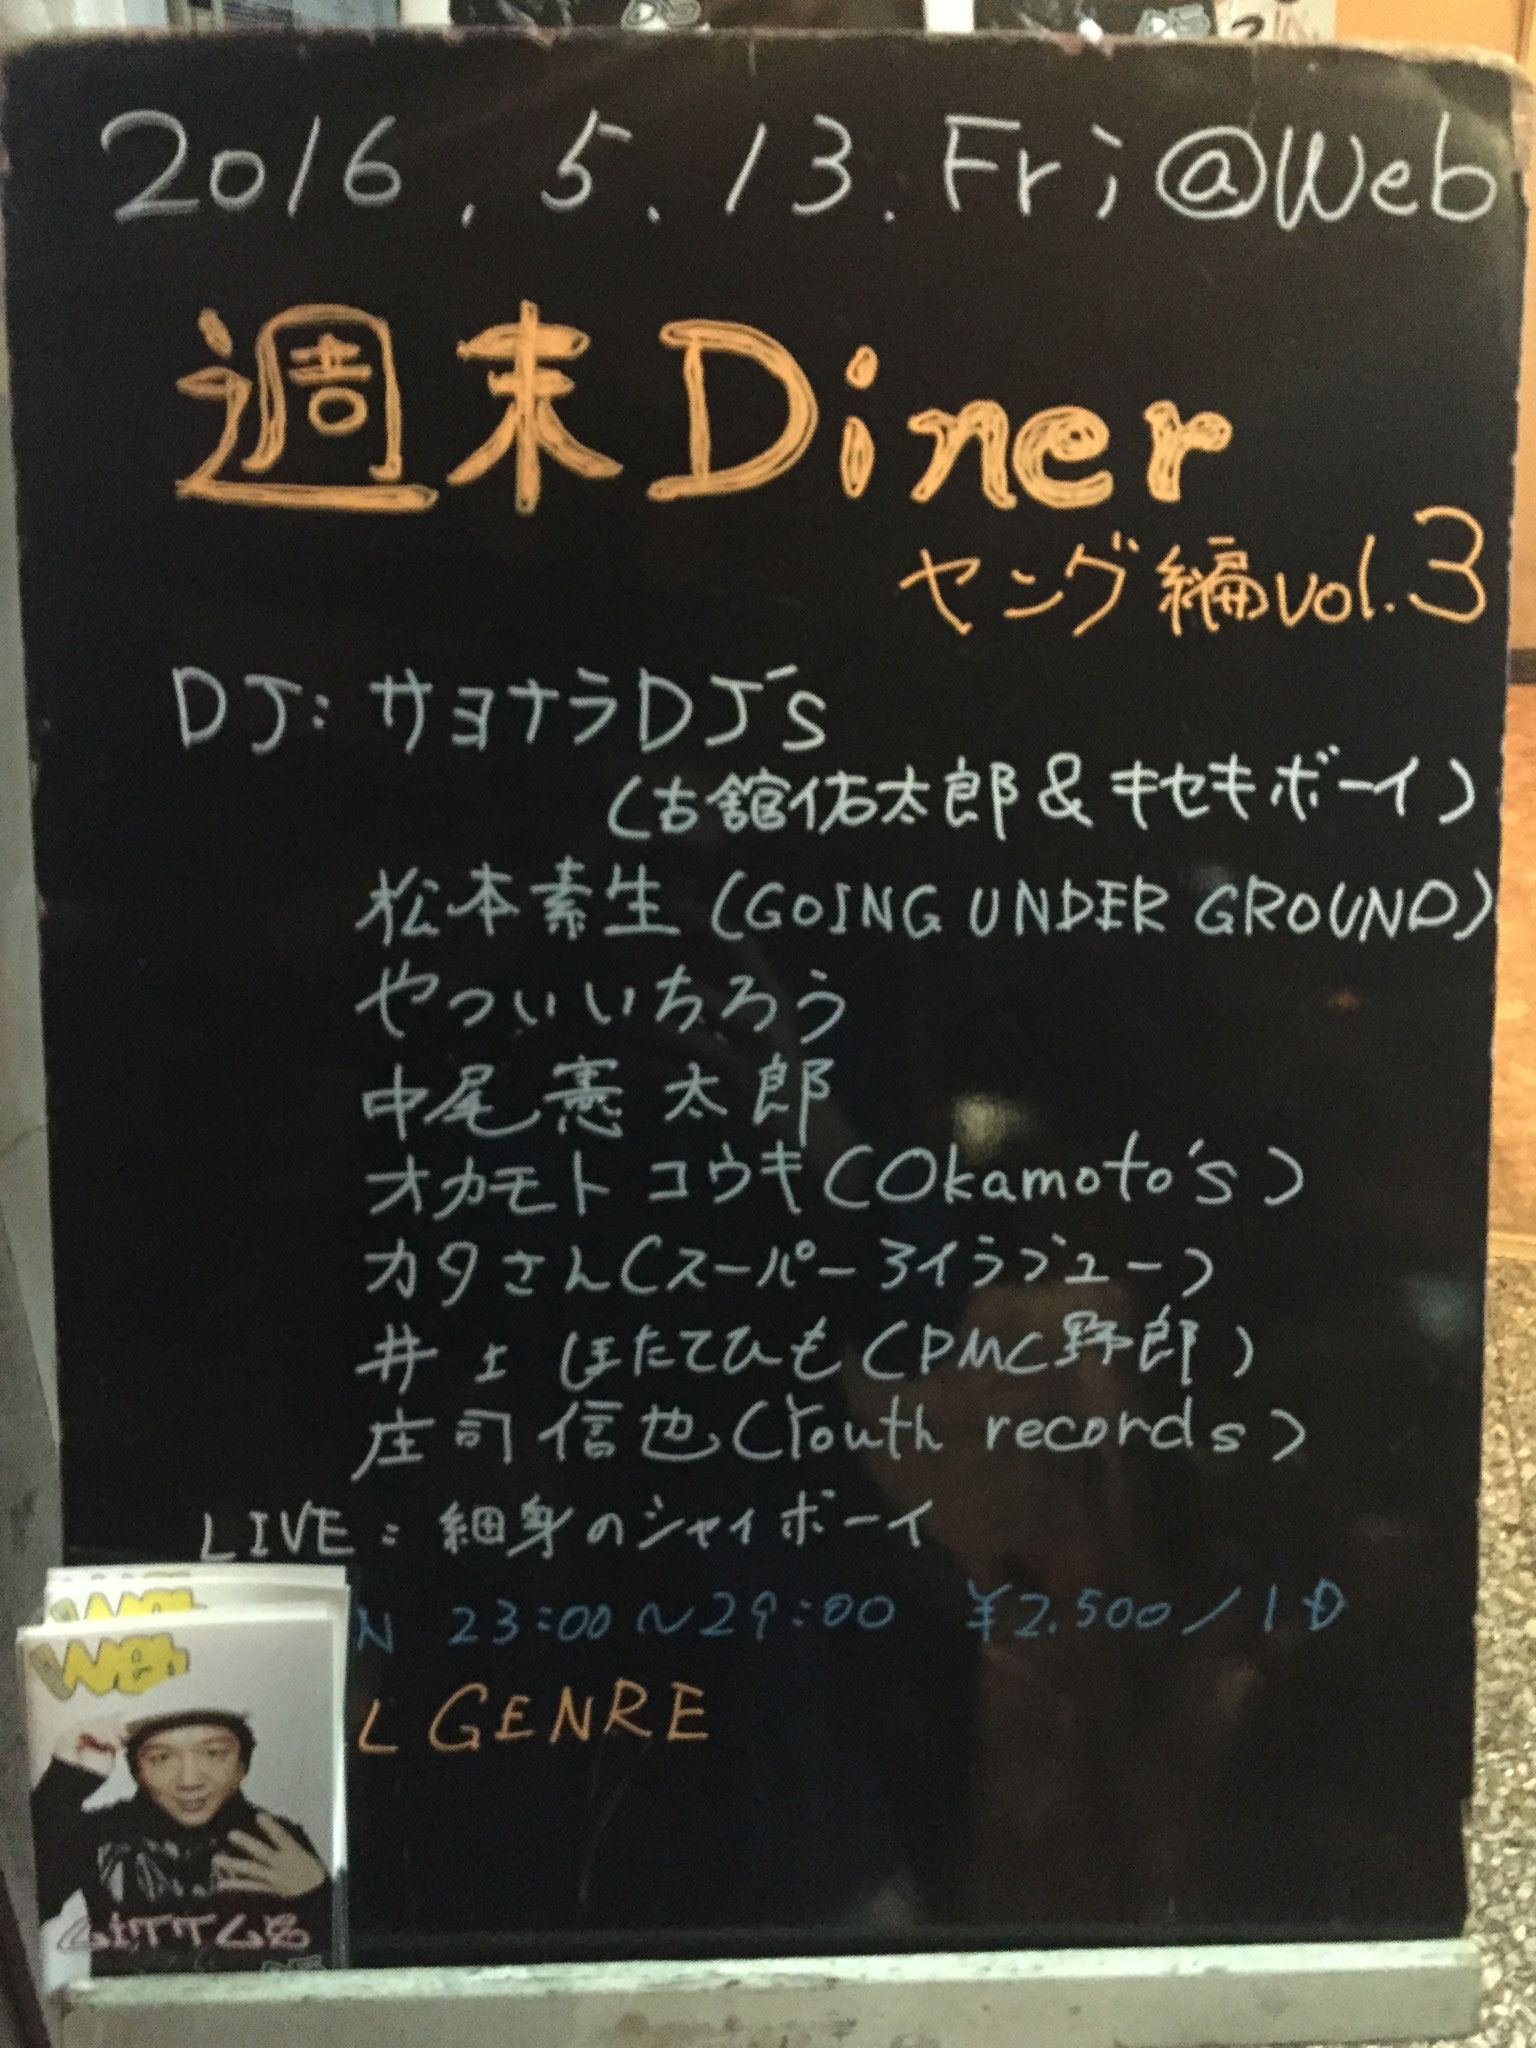 2016.5.13.Fri @Web
週末Diner
ヤング編vol.3
DJ: サヨナラDJ's
(古舘佑太郎&キセキボーイ)
松本素生(GOING UNDER GROUND)
やついいちろう
中尾憲太郎
オカモトコウキ(Okamoto's)
カタさん(スーパー3イラブユー)
井上ほたてひも(PMC野郎)
庄司信也(Youth records)
LIVE: 細身のシャイボーイ
N 23:00~29:00 ¥2.500/1D
L GENRE
Web